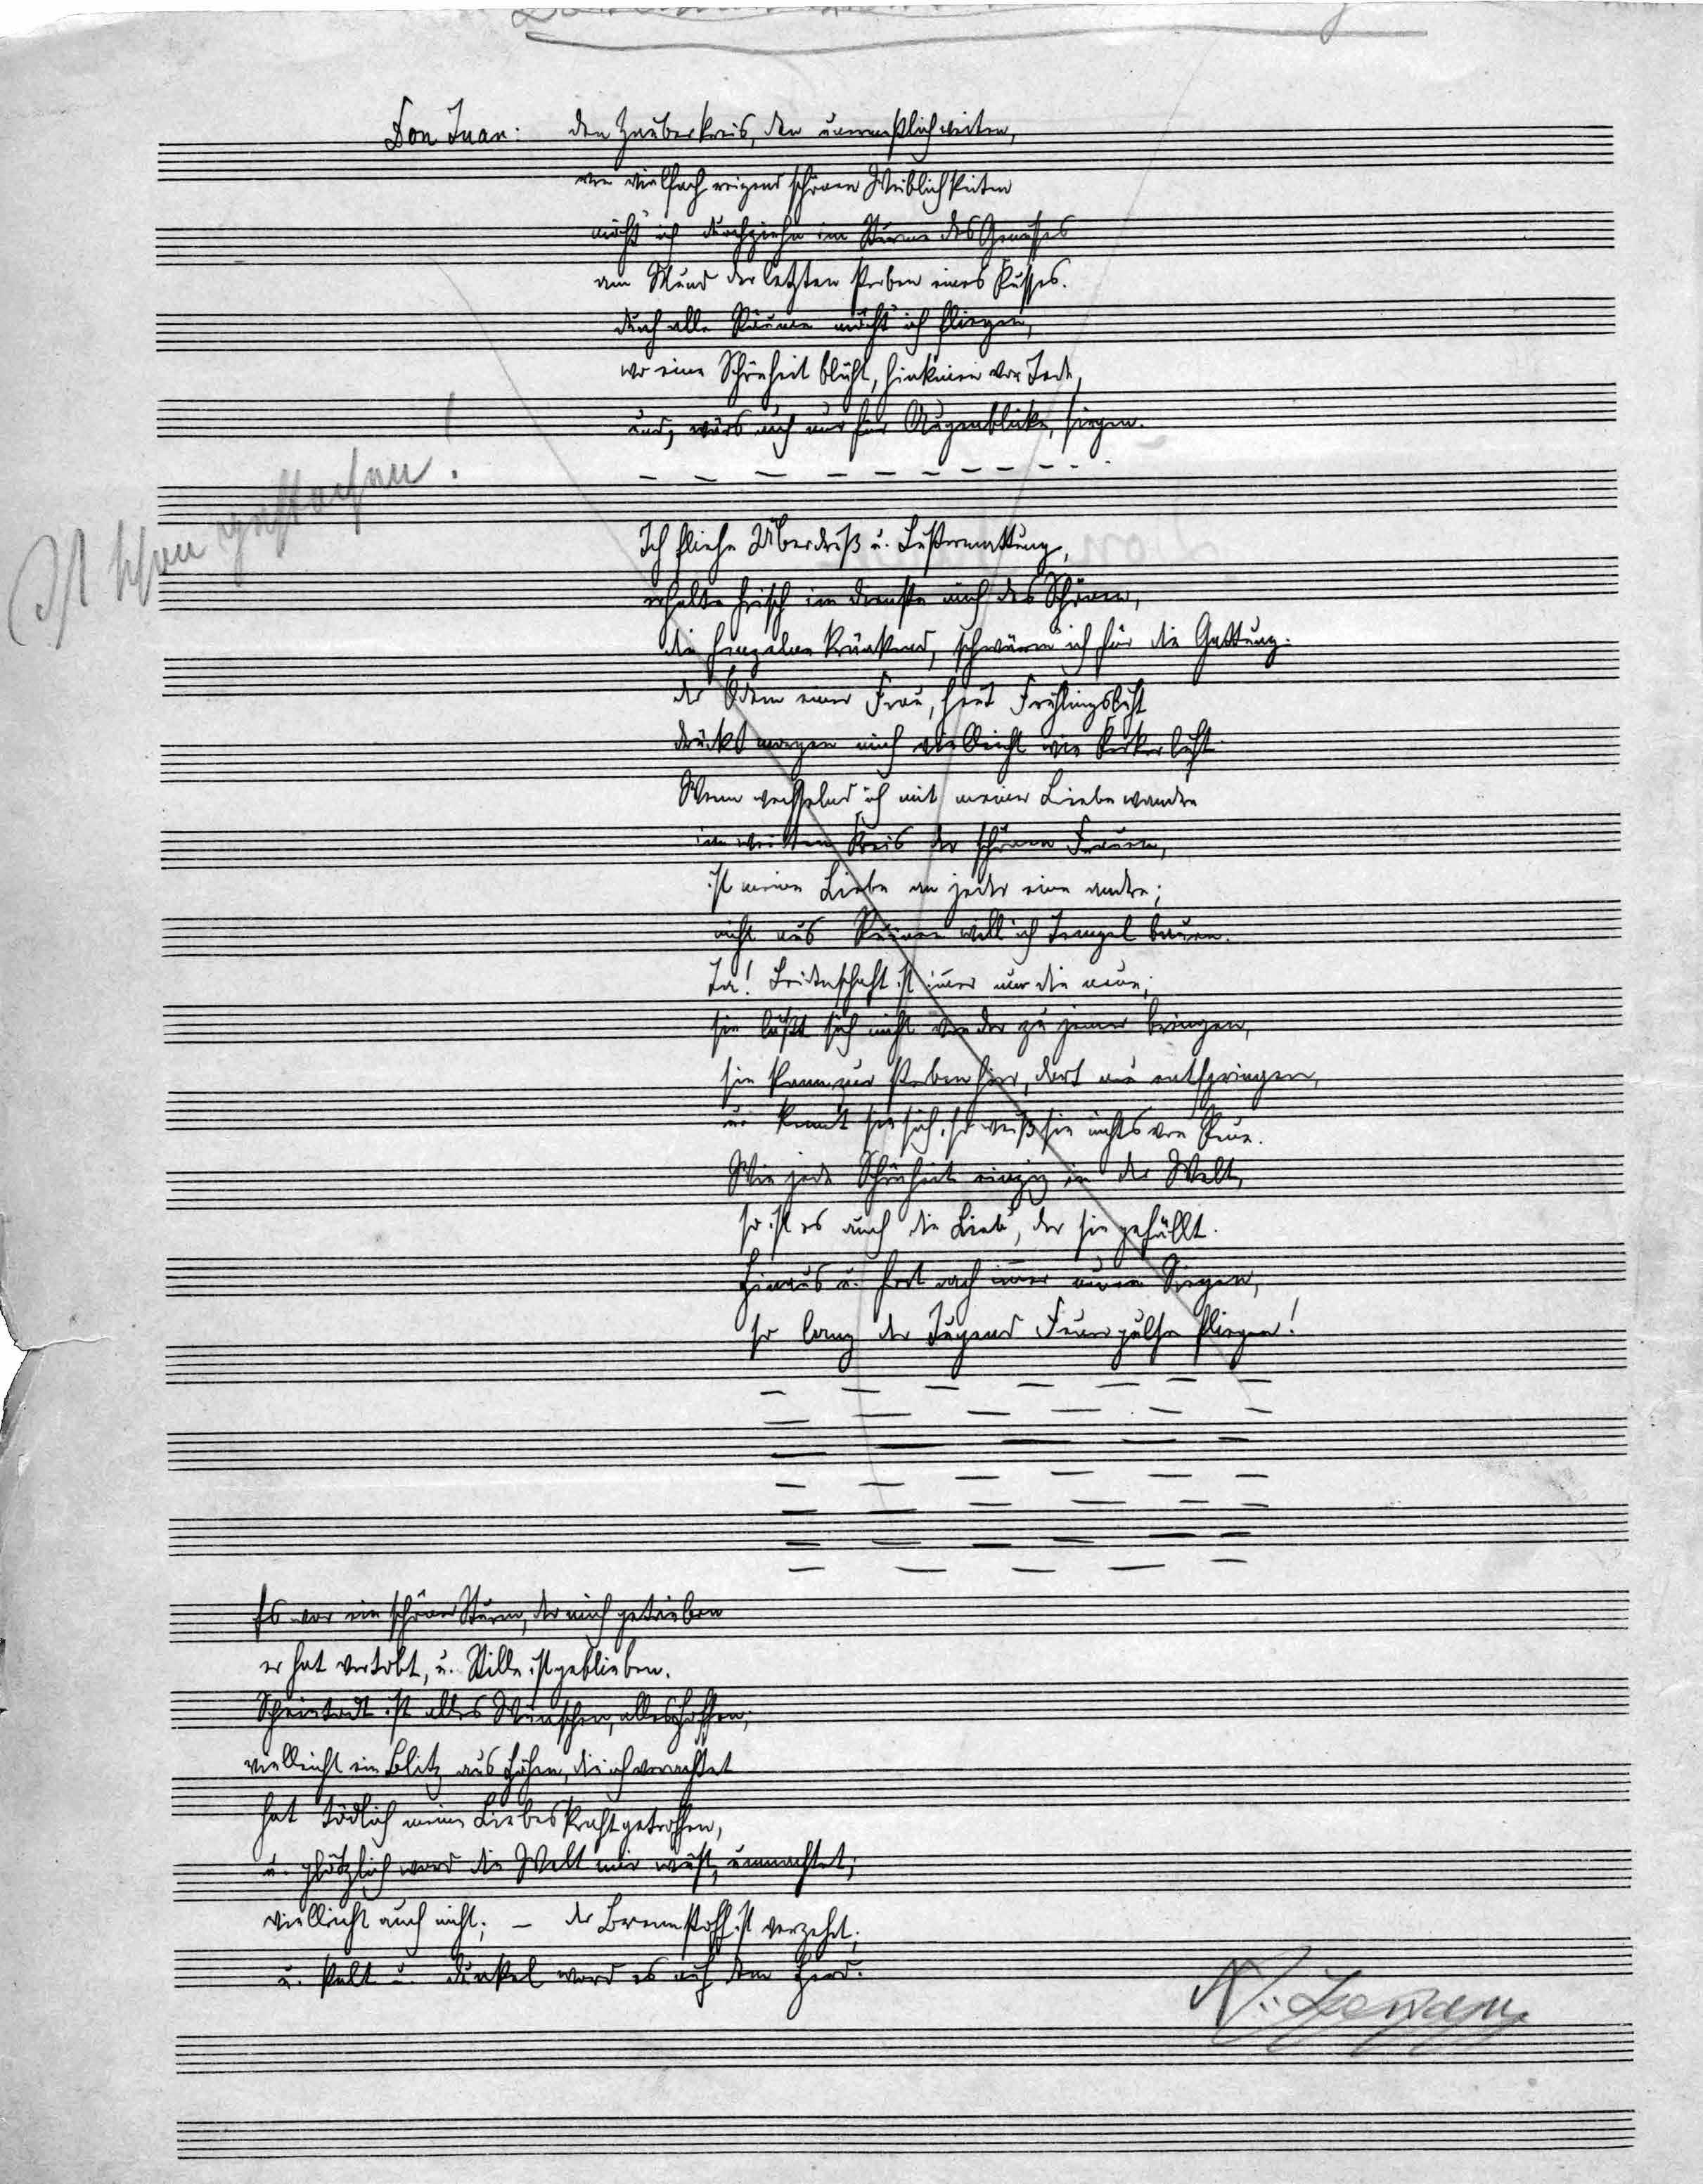 Don Juan: den Zauberkreis, den unermeßlich weiten,
von vielfach reizend schönen Weiblichkeiten
möcht' ich durchziehn im Sturme des Genusses
am Mund der letzten sterben eines Kusses.
durch alle Räume möcht' ich fliegen,
wo eine Schönheit blüht, hinknien vor Jede,
und, wärs auch nur für Augenblicke, siegen.
Ist schon gestochen!
Ich fliehe Überdruß u. Lustermattung,
erhalte frisch im Dienste mich des Schönen,
die Einzelne kränkend, schwärm' ich für die Gattung.
der Odem einer Frau, heut Frühlingsluft
drückt morgen mich vielleicht wie Kerkerluft.
Wenn wechselnd ich mit meiner Liebe wandre
im weiten Kreis der schönen Frauen,
ist meine Liebe an jeder eine andre;
nicht aus Ruinen will ich Tempel bauen.
Ja! Leidenschaft ist im̄er nur die neue;
sie läßt sich nicht von der zu jener bringen,
sie kann nur sterben hier, dort neu entspringen,
u. kennt sie sich, so weiß sie nichts von Reue.
Wie jede Schönheit einzig in der Welt,
so ist es auch die Lieb', der sie gefällt.
Hinaus u. fort nach im̄er neuen Siegen,
so lang der Jugend Feuerpulse fliegen!
Es war ein schöner Sturm, der mich getrieben
er hat vertobt, u. Stille ist geblieben.
Scheintodt ist alles Wünschen, alles Hoffen;
vielleicht ein Blitz aus Höhen, die ich verachtet
hat tödlich meine Liebeskraft getroffen,
u. plötzlich ward die Welt mir wüst, umnachtet;
vielleicht auch nicht; – der Brennstoff ist verzehrt,
u. kalt u. dunkel ward es auf dem Herd.